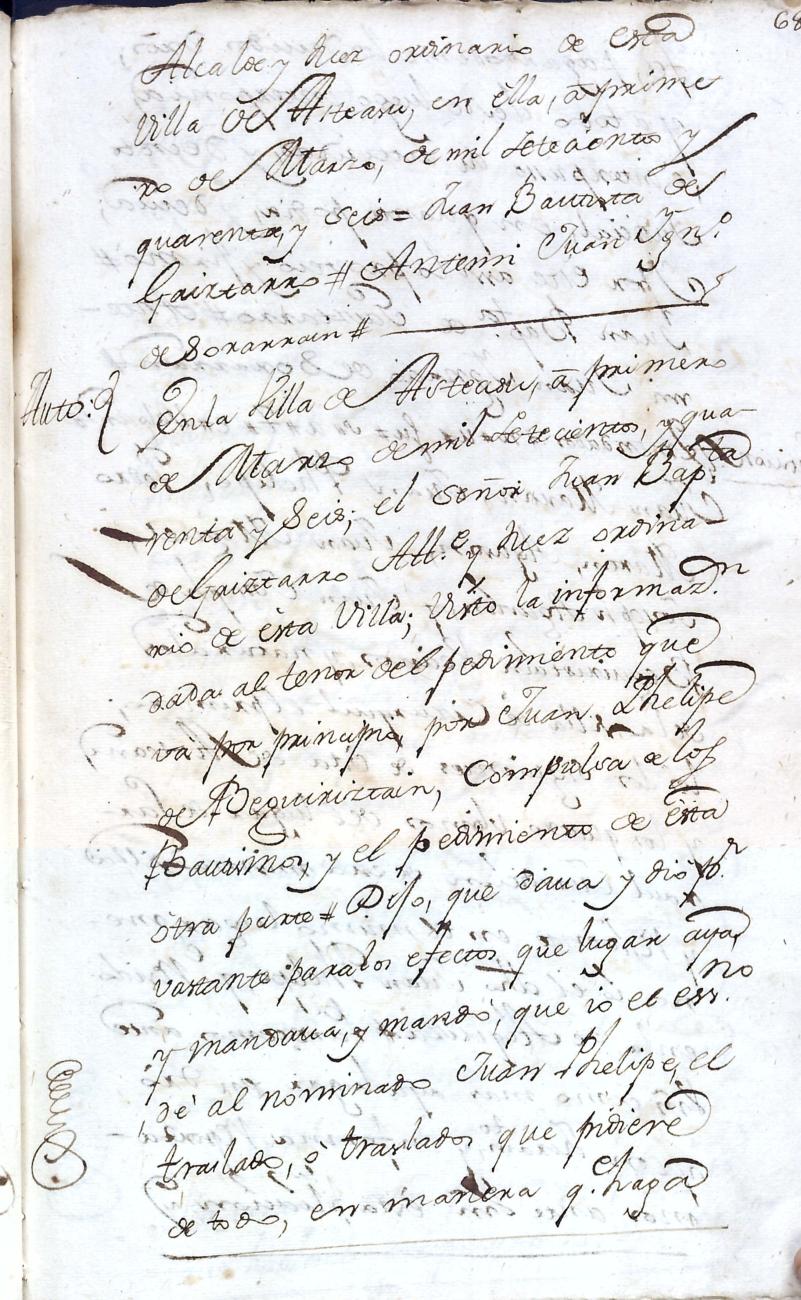 68
Alcalde y Juez ordinario de esta
Villa de Asteasu, en ella, â prime
ro de Marzo, de mil setecientos y
quarenta, y seis = Juan Bautista de
Gaiztarro # Antemi Juan Ygn.º
de Sorarrain #
Auto.
En la Villa de Asteasu, â primero
de Marzo de mil setecientos, y qua-
renta y seis; el señor Juan Bap.ta
de Gaiztarro All.e y Juez ordina
rio de ésta Villa; visto la informaz.n
dada al tenor del pedimiento que
va por principio, por Juan Phelipe
de Beguiriztain, Compulsa de los
Bautismos, y el pedimiento de ésta
otra parte # Dijo, que dava y dió p.r
vastante para los efectos que lugar aya,
y mandava, y mandó, que io el ess.no
dé al nominado Juan Phelipe, el
traslado, ó traslados que pidiere
de todo, en manera q.e haga